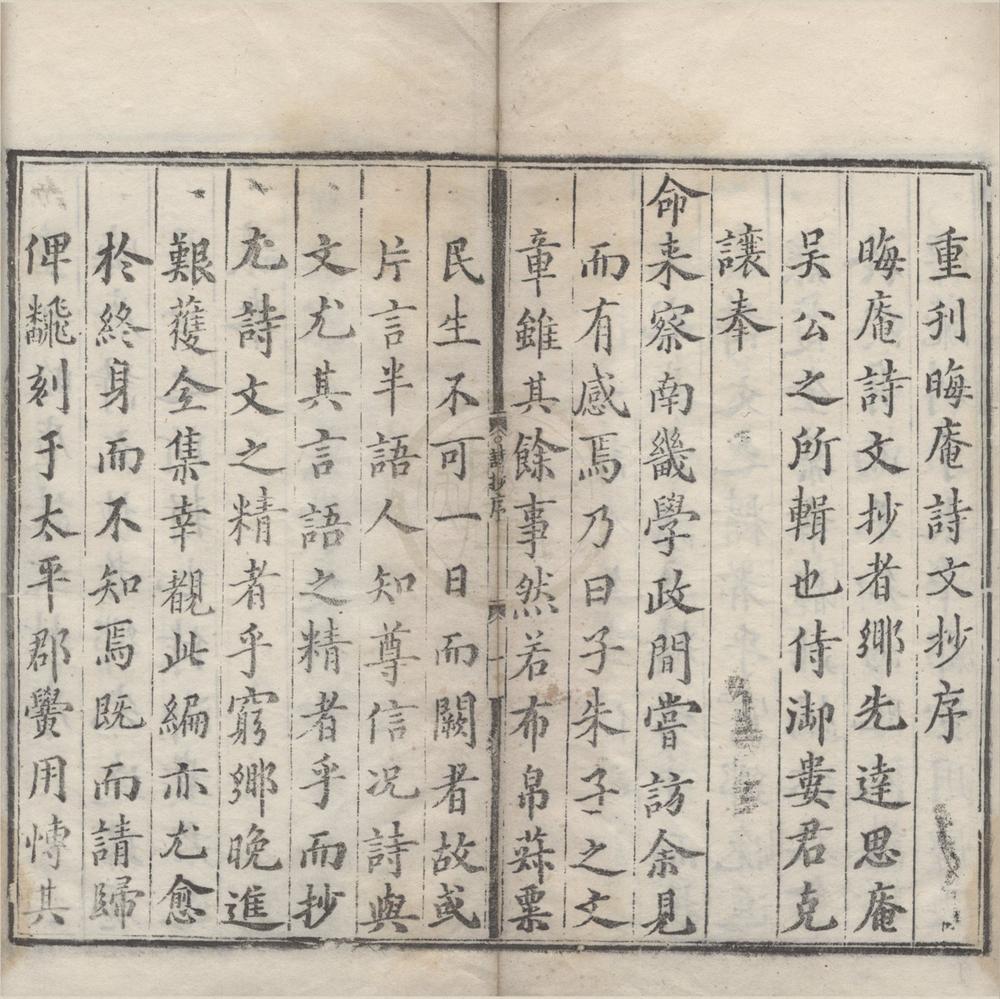 重刋晦庵詩文抄序
晦庵詩文抄者鄉先達思庵
吳公之所輯也侍御婁君克
讓奉
命来察南畿學政間嘗訪余見
而有感焉乃曰子朱子之文
章雖其餘事然若布帛菽粟
民生不可一日而闕者故或
片言半語人知尊信况詩與
文尤其言語之精者乎而抄
尤詩文之精者乎窮鄉晚進
艱獲全集幸覩此編亦尤愈
於終身而不知焉既而請歸
俾繙刻于太平郡黌用慱其
詩抄序
一